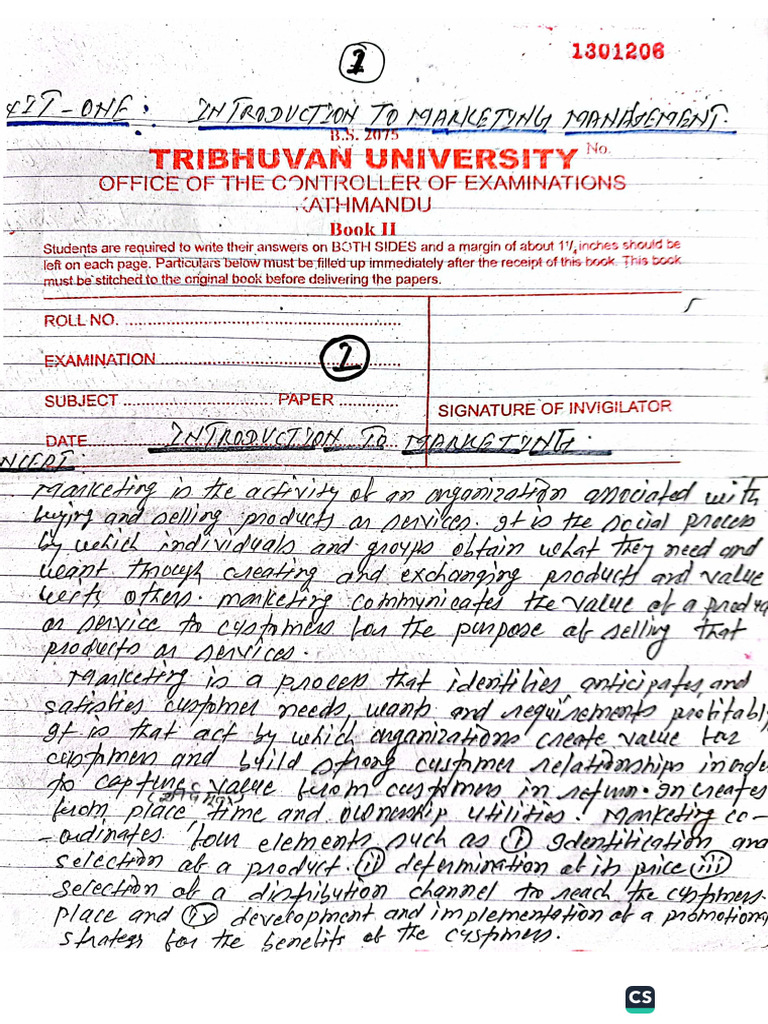 1
1301206
IT-ONE: INTRODUCTION TO MARKETING MANAGEMENT.
B.S. 2075
TRIBHUVAN UNIVERSITY No.
OFFICE OF THE CONTROLLER OF EXAMINATIONS
KATHMANDU
Book II
Students are required to write their answers on BOTH SIDES and a margin of about 1 1/4 inches should be
left on each page. Particulars below must be filled up immediately after the receipt of this book. This book
must be stitched to the original book before delivering the papers.
ROLL NO.
EXAMINATION 1
SUBJECT PAPER
SIGNATURE OF INVIGILATOR
DATE INTRODUCTION TO MARKETING.
NCEPT:
Marketing is the activity of an organization associated with
buying and selling products or services. It is the social process
by which individuals and groups obtain what they need and
want through creating and exchanging products and value
with others. marketing communicates the value of a produ
or service to customers for the purpose of selling that
products or services.
Marketing is a process that identifies anticipates, and
satisfies customer needs, wants and requirements profitably
It is that act by which organizations create value for
customers and build strong customer relationships in orde
to capture value from customers in return. It creates
from place, time and ownership utilities. Marketing co-
-ordinates four elements such as (i) Identification and
selection of a product (ii) determination of its price (iii)
selection of a distribution channel to reach the customers
place and (iv) development and implementation of a promotional
strategy for the benefits of the customers.
CS